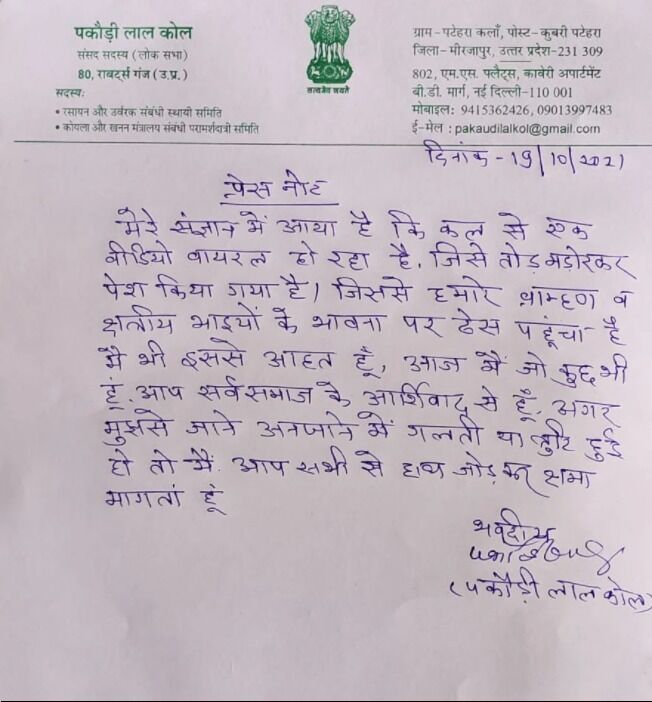 पकौड़ी लाल कोल
संसद सदस्य (लोक सभा)
80, राबर्ट्स गंज (उ.प्र.)
सदस्यः
• रसायन और उर्वरक संबंधी स्थायी समिति
• कोयला और खनन मंत्रालय संबंधी परामर्शदात्री समिति
सत्यमेव जयते
ग्राम - पटेहरा कलाँ, पोस्ट - कुबरी पटेहरा
जिला - मीरजापुर, उत्तर प्रदेश-231 309
802, एम.एस. फ्लैट्स, कावेरी अपार्टमेंट
बी.डी. मार्ग, नई दिल्ली-110 001
मोबाइल: 9415362426, 09013997483
ई-मेल : pakaudilalkol@gmail.com
दिनांक - 19/10/2021
प्रेस नोट
मेरे संज्ञान में आया है कि कल से एक
वीडियो वायरल हो रहा है, जिसे तोड़ मड़ोरकर
पेश किया गया है। जिससे हमारे ब्राम्हण व
क्षत्रीय भाइयों के भावना पर ठेस पहूंचा है
मैं भी इससे आहत हूँ, आज मैं जो कुछ भी
हूं. आप सर्वसमाज के आर्शिवाद से हूँ, अगर
मुझसे जाने अनजाने में गलती या त्रुटि हुई
हो तो मैं. आप सभी से हाथ जोड़कर क्षमा
मागतां हूं
भवदीय
(पकौड़ी लाल कोल)